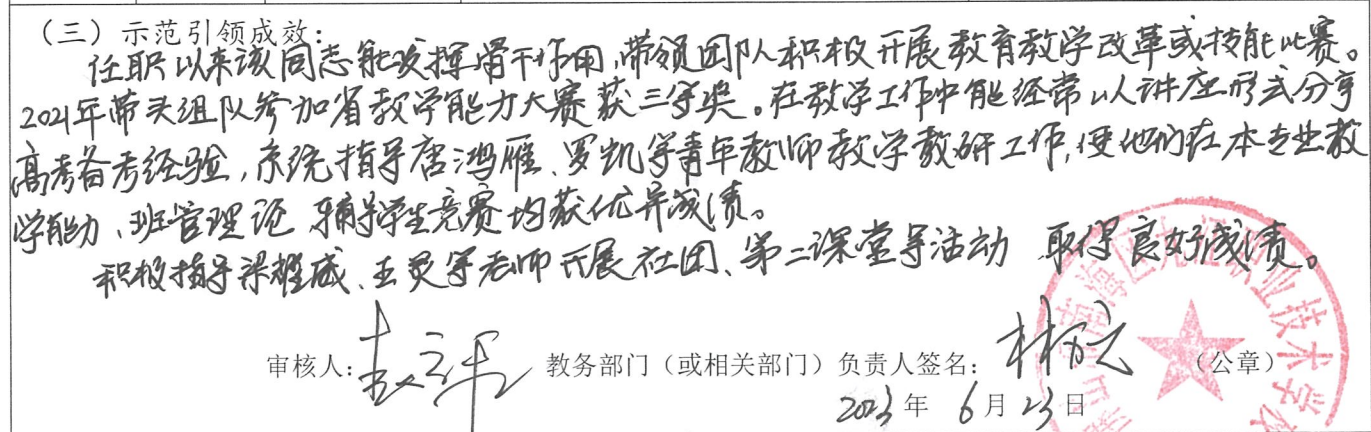 （三）示范引领成效：
任职以来该同志能发挥骨干作用，带领团队积极开展教育教学改革或技能比赛。
2021年带头组队参加省教学能力大赛获三等奖。在教学工作中能经常以讲座形式分享
高考备考经验，系统指导唐鸿雁、罗凯等青年教师教学教研工作，使他们在本专业教
学能力、班管理论、辅导学生竞赛均获优异成绩。
积极指导梁耀威、王灵等老师开展社团、第二课堂等活动 取得良好成绩。
审核人： 教务部门（或相关部门）负责人签名： （公章）
2023年 6月23日
职业技术学校